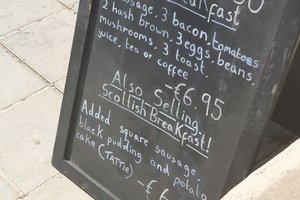 Breakfast
sausage, 3 bacon, tomatoes
2 hash brown, 3 eggs, beans,
mushrooms, 3 toast.
juice, tea or coffee
-€6.95
Also Selling.
Scottish Breakfast!
Added square sausage,
black pudding and potato
cake (TATTIE)
-€6